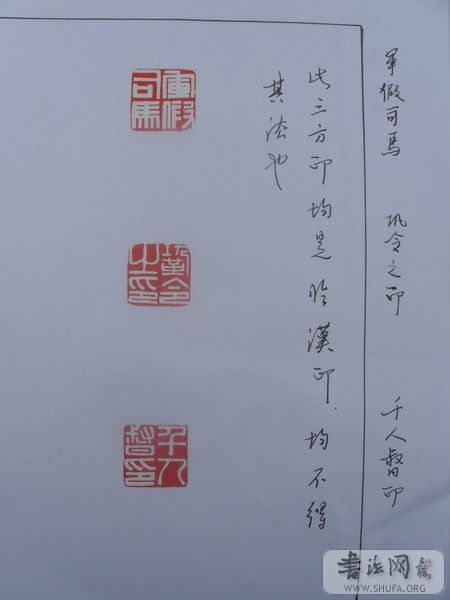 军假司馬 巩令之印 千人督印
此三方印均是临漢印.均不得
其法也
軍假司馬
鞏令之印
千人督印
書法网
WWW.SHUFA.ORG